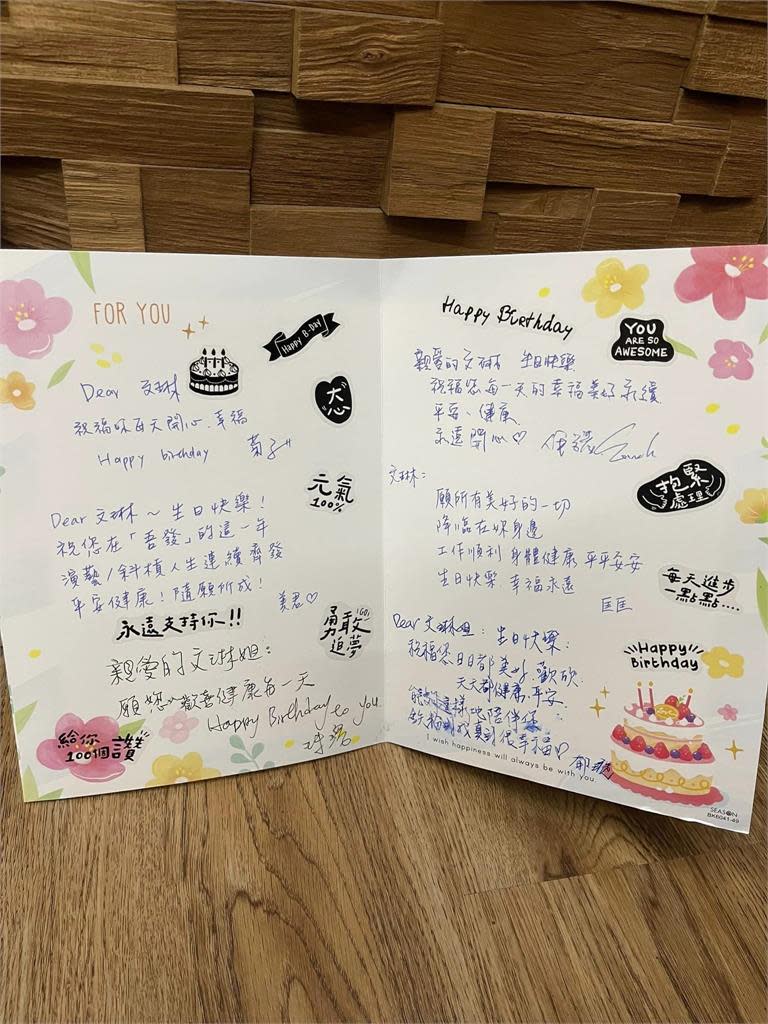 FOR YOU
Happy B-Day
Dear 文琳
祝福妳百天開心、幸福
Happy birthday 菊子
大心
元氣
100%
Dear 文琳～生日快樂！
祝您在「吾發」的這一年
演藝/斜槓人生連續齊發
平安健康！隨願所成！
美君♡
永遠支持你!!
勇敢
追夢
GO!
親愛的文琳姐：
願您歡喜健康每一天
Happy Birthday to you
給你
100個讚
Happy Birthday
YOU
ARE SO
AWESOME
親愛的文琳 生日快樂
祝福您每一天的幸福美好永續
平安、健康
永遠開心♡ Sarah
抱緊
處理
文琳：
願所有美好的一切
降臨在妳身邊
工作順利 身體健康 平平安安
生日快樂 幸福永遠
匡匡
每天進步
一點點....
Dear 文琳姐：生日快樂：
祝福您日日都美好、歡欣
天天都健康、平安
能 這樣 陪伴
真 很幸福♡
Happy
Birthday
I wish happiness will always be with you.
SEASON
BK6041-49